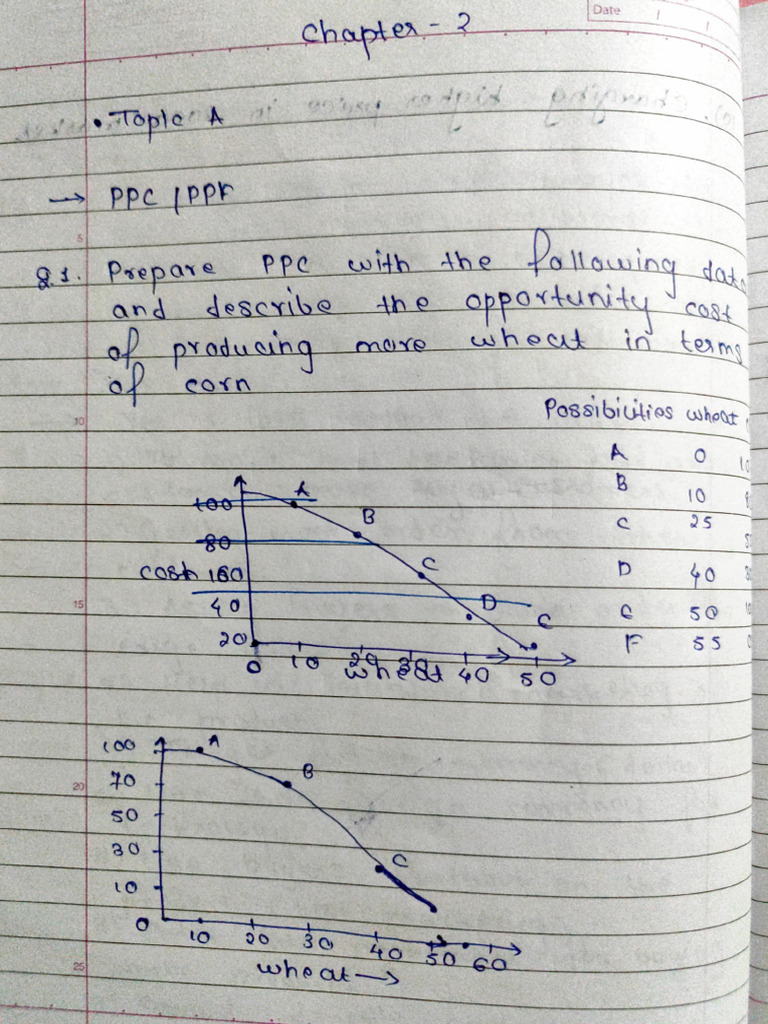 Date
Chapter - 2
• Topic A
→ PPC / PPF
Q1. Prepare PPC with the following data
and describe the opportunity cost
of producing more wheat in terms
of corn
Possibilities wheat
A 0
B 10
C 25
D 40
C 50
F 55
100
80
40
20
A
B
C
D
C
0 10 20 30 40 50
wheat
100
70
50
30
10
0
A
B
C
10 20 30 40 50 60
wheat →
5
10
15
20
25